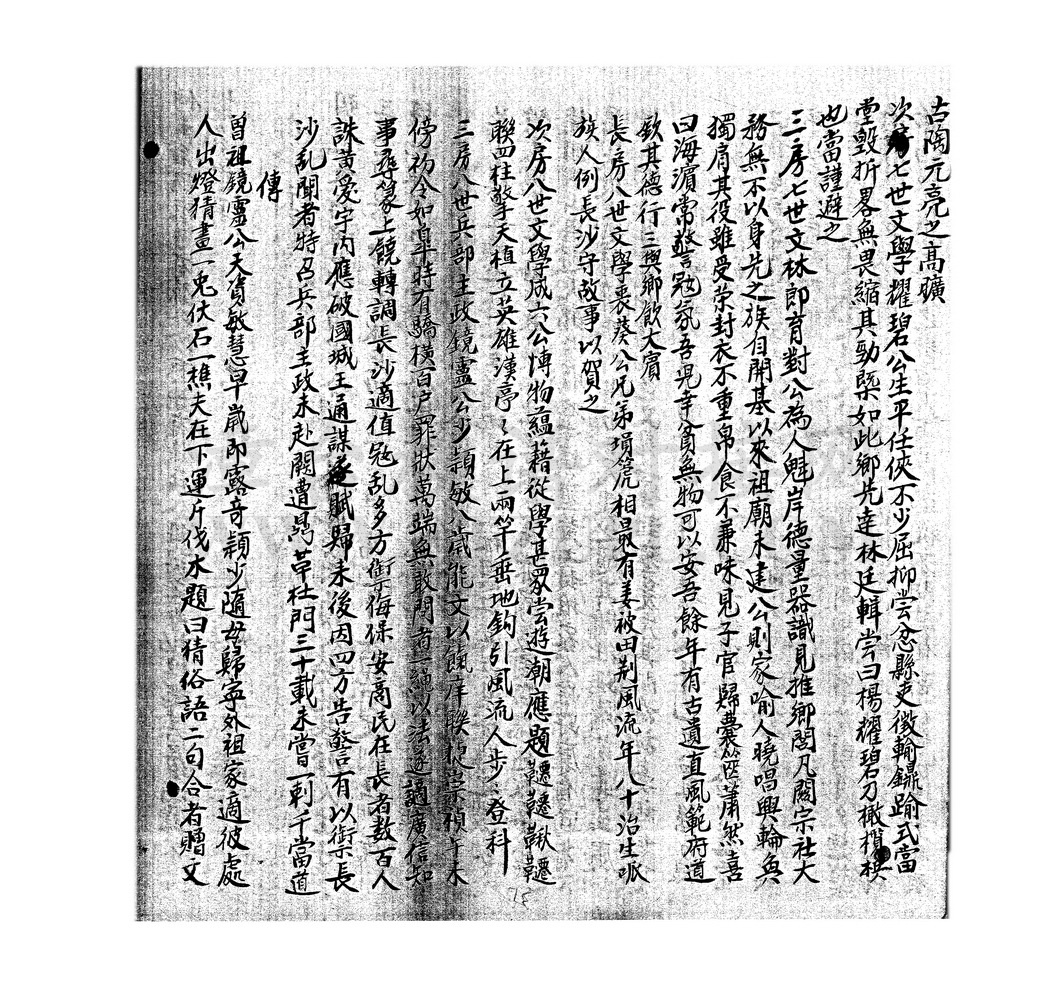 古陶元亮之高曠
次房七世文學耀碧公生平任俠不少屈抑嘗忿縣吏徵輸鐤踰式當
堂毀折畧無畏縮其勁槩如此鄉先達林廷輯嘗曰楊耀碧刀橄欖槙
也當謹避之
三房七世文林郎育對公為人魁岸德量器識見推鄉閭凡闕宗社大
務無不以身先之族自開基以來祖廟未建公則家喻人曉唱興輪奐
獨肩其役雖受榮封衣不重帛食不兼味見子官歸囊篋蕭然喜
曰海濵常警冦氛吾兒幸貧無物可以安吾餘年有古遺直風範府道
欽其德行三與鄉飲大賓
長房八世文學裹葵公兄弟塤箎相最有姜被田荆風流年八十治生哌
族人例長沙守故事以賀之
次房八世文學成六公博物蘊藉從學甚眾嘗遊潮應題韆韆鞦韆
聯四柱擎天植立英雄漢亭亭在上兩竿垂地鉤引風流人步步登科
三房八世兵部主政鏡靈公少頴敏八歲能文以餼庠膺崇禎壬午木
傍初令如皋時有驕橫百戶罪狀萬端無敢問者一繩以法遂謫廣信知
事尋篆上饒轉調長沙適值冦亂多方衛侮保安商民在長者数百人
誅黃愛宇內應破國城王通謀遂賦歸未後因四方告警有以衛禦長
沙亂聞者特召兵部主政未赴闕遭鼎革杜門三十載未嘗一刺千當道
傳
曾祖鏡靈公天資敏慧早歲即露竒頴少隨母歸寧外祖家適彼處
人出燈猜畫一兎伏石一樵夫在下運斤伐木題曰猜俗語二句合者贈文